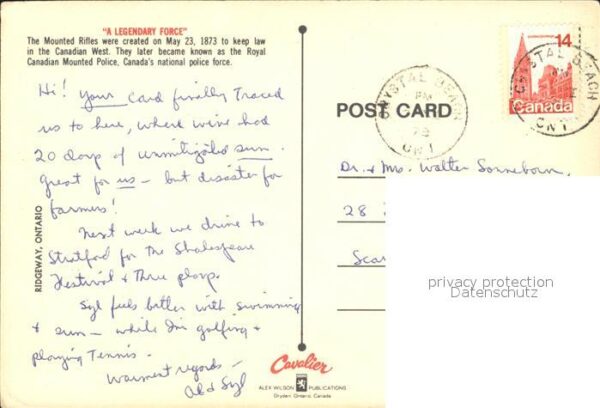 "A LEGENDARY FORCE"
The Mounted Rifles were created on May 23, 1873 to keep law
in the Canadian West. They later became known as the Royal
Canadian Mounted Police, Canada's national police force.
Hi! Your card finally traced
us to here, where we've had
20 days of unmitigated sun.
Great for us - but disaster for
farmers!
Next week we drive to
Stratford for the Shakespeare
Festival & three plays.
Syl feels better with swimming
& sun - while I'm golfing &
playing Tennis.
Warmest regards -
Al & Syl
RIDGEWAY, ONTARIO
POST CARD
14
Canada
CRYSTAL BEACH
PM
78
ONT
CRYSTAL BEACH
PM
ONT
Dr. & Mrs. Walter Sonneborn,
28
Scar
privacy protection
Datenschutz
Cavalier
ALEX WILSON PUBLICATIONS
Dryden, Ontario, Canada